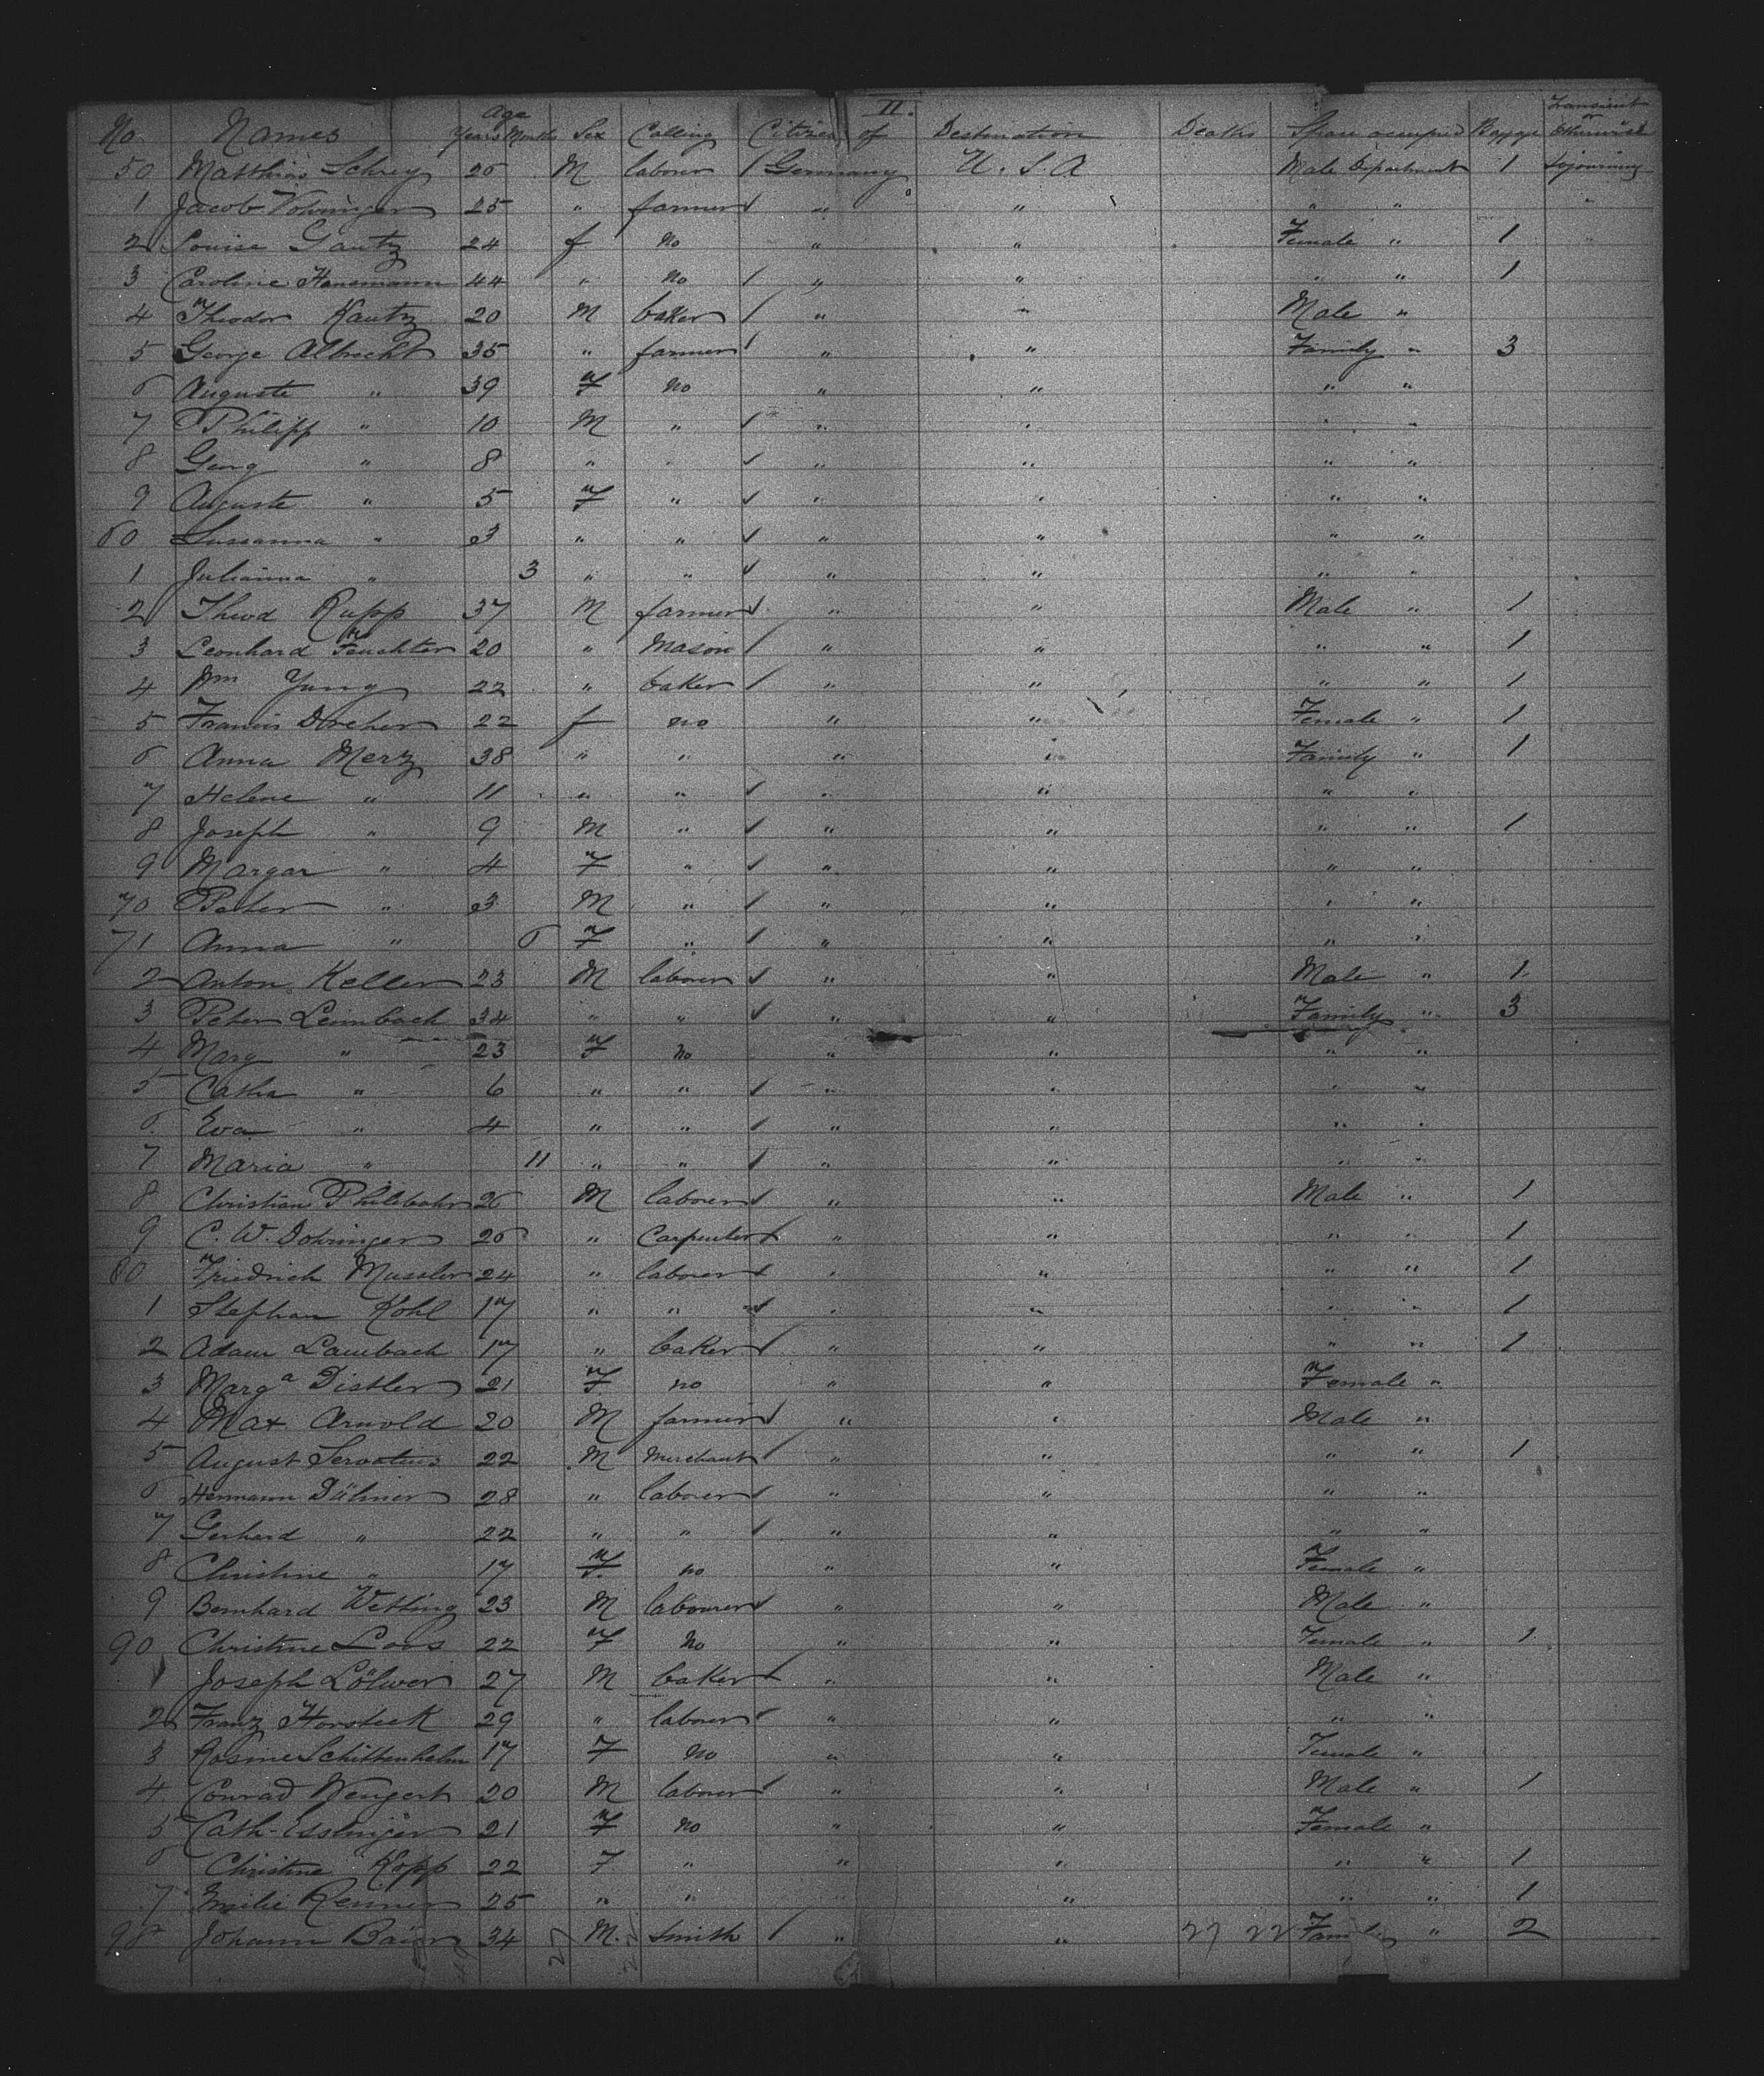 II.
No Names Age Years Months Sex Calling Citizen of Destination Deaths Space occupied Baggage Transient or Otherwise
50 Matthias Schrey 26 M laborer / Germany U. S. A Male Department 1 Sojourning
1 Jacob Vohringer 25 " farmer / " " " " "
2 Louise Gautz 24 f no " " Female " 1 "
3 Caroline Hansmann 44 " no / " " " " 1
4 Theodor Kautz 20 M baker / " " Male "
5 George Albrecht 35 " farmer / " " Family " 3
6 Auguste " 39 F no " " " "
7 Philipp " 10 M " / " " " "
8 Georg " 8 " " / " " " "
9 Auguste " 5 F " / " " " "
60 Sussanna " 3 " " / " " " "
1 Julianna " 3 " " / " " " "
2 Theod Rupp 37 M farmer / " " Male " 1
3 Leonhard Feuchter 20 " Mason / " " " " 1
4 Wm Yung 22 " baker / " " " " 1
5 Francis Dreher 22 f no " " Female " 1
6 Anna Merz 38 " " " " Family " 1
7 Helene " 11 " " / " " " "
8 Joseph " 9 M " / " " " " 1
9 Margar " 4 F " / " " " "
70 Peter " 3 M " / " " " "
71 Anna " 6 F " / " " " "
2 Anton Keller 23 M laborer / " " Male " 1
3 Peter Leimbach 34 " " / " " Family " 3
4 Marg " 23 F no " " " "
5 Catha " 6 " " / " " " "
6 Eva " 4 " " / " " " "
7 Maria " 11 " " / " " " "
8 Christian Philebahr 26 M laborer / " " Male " 1
9 C. W. Dohringer 26 " Carpenter / " " " " 1
80 Friedrich Mussler 24 " laborer / " " " " 1
1 Stephan Kohl 17 " " / " " " " 1
2 Adam Laubach 17 " baker / " " " " 1
3 Marga Distler 21 F. no " " Female "
4 Max Arnold 20 M farmer / " " Male "
5 August Servatius 22 M Merchant / " " " " 1
6 Hermann Dälmer 28 " laborer / " " " "
7 Gerhard " 22 " " / " " " "
8 Christine " 17 F. no " " Female "
9 Bernhard Wetting 23 M labourer / " " Male "
90 Christine Loos 22 F No " " Female " 1
1 Joseph Lölwer 27 M baker / " " Male "
2 Franz Horsteck 29 " laborer / " " " "
3 Rosine Schittenhelm 17 F no " " Female "
4 Conrad Wengert 20 M laborer / " " Male " 1
5 Cath. Esslinger 21 F no " " Female "
6 Christine Kopp 22 F " " " " " 1
7 Emilie Renner 25 " " " " " " 1
98 Johann Baier 34 M. Smith / " " 27 22 Family " 2